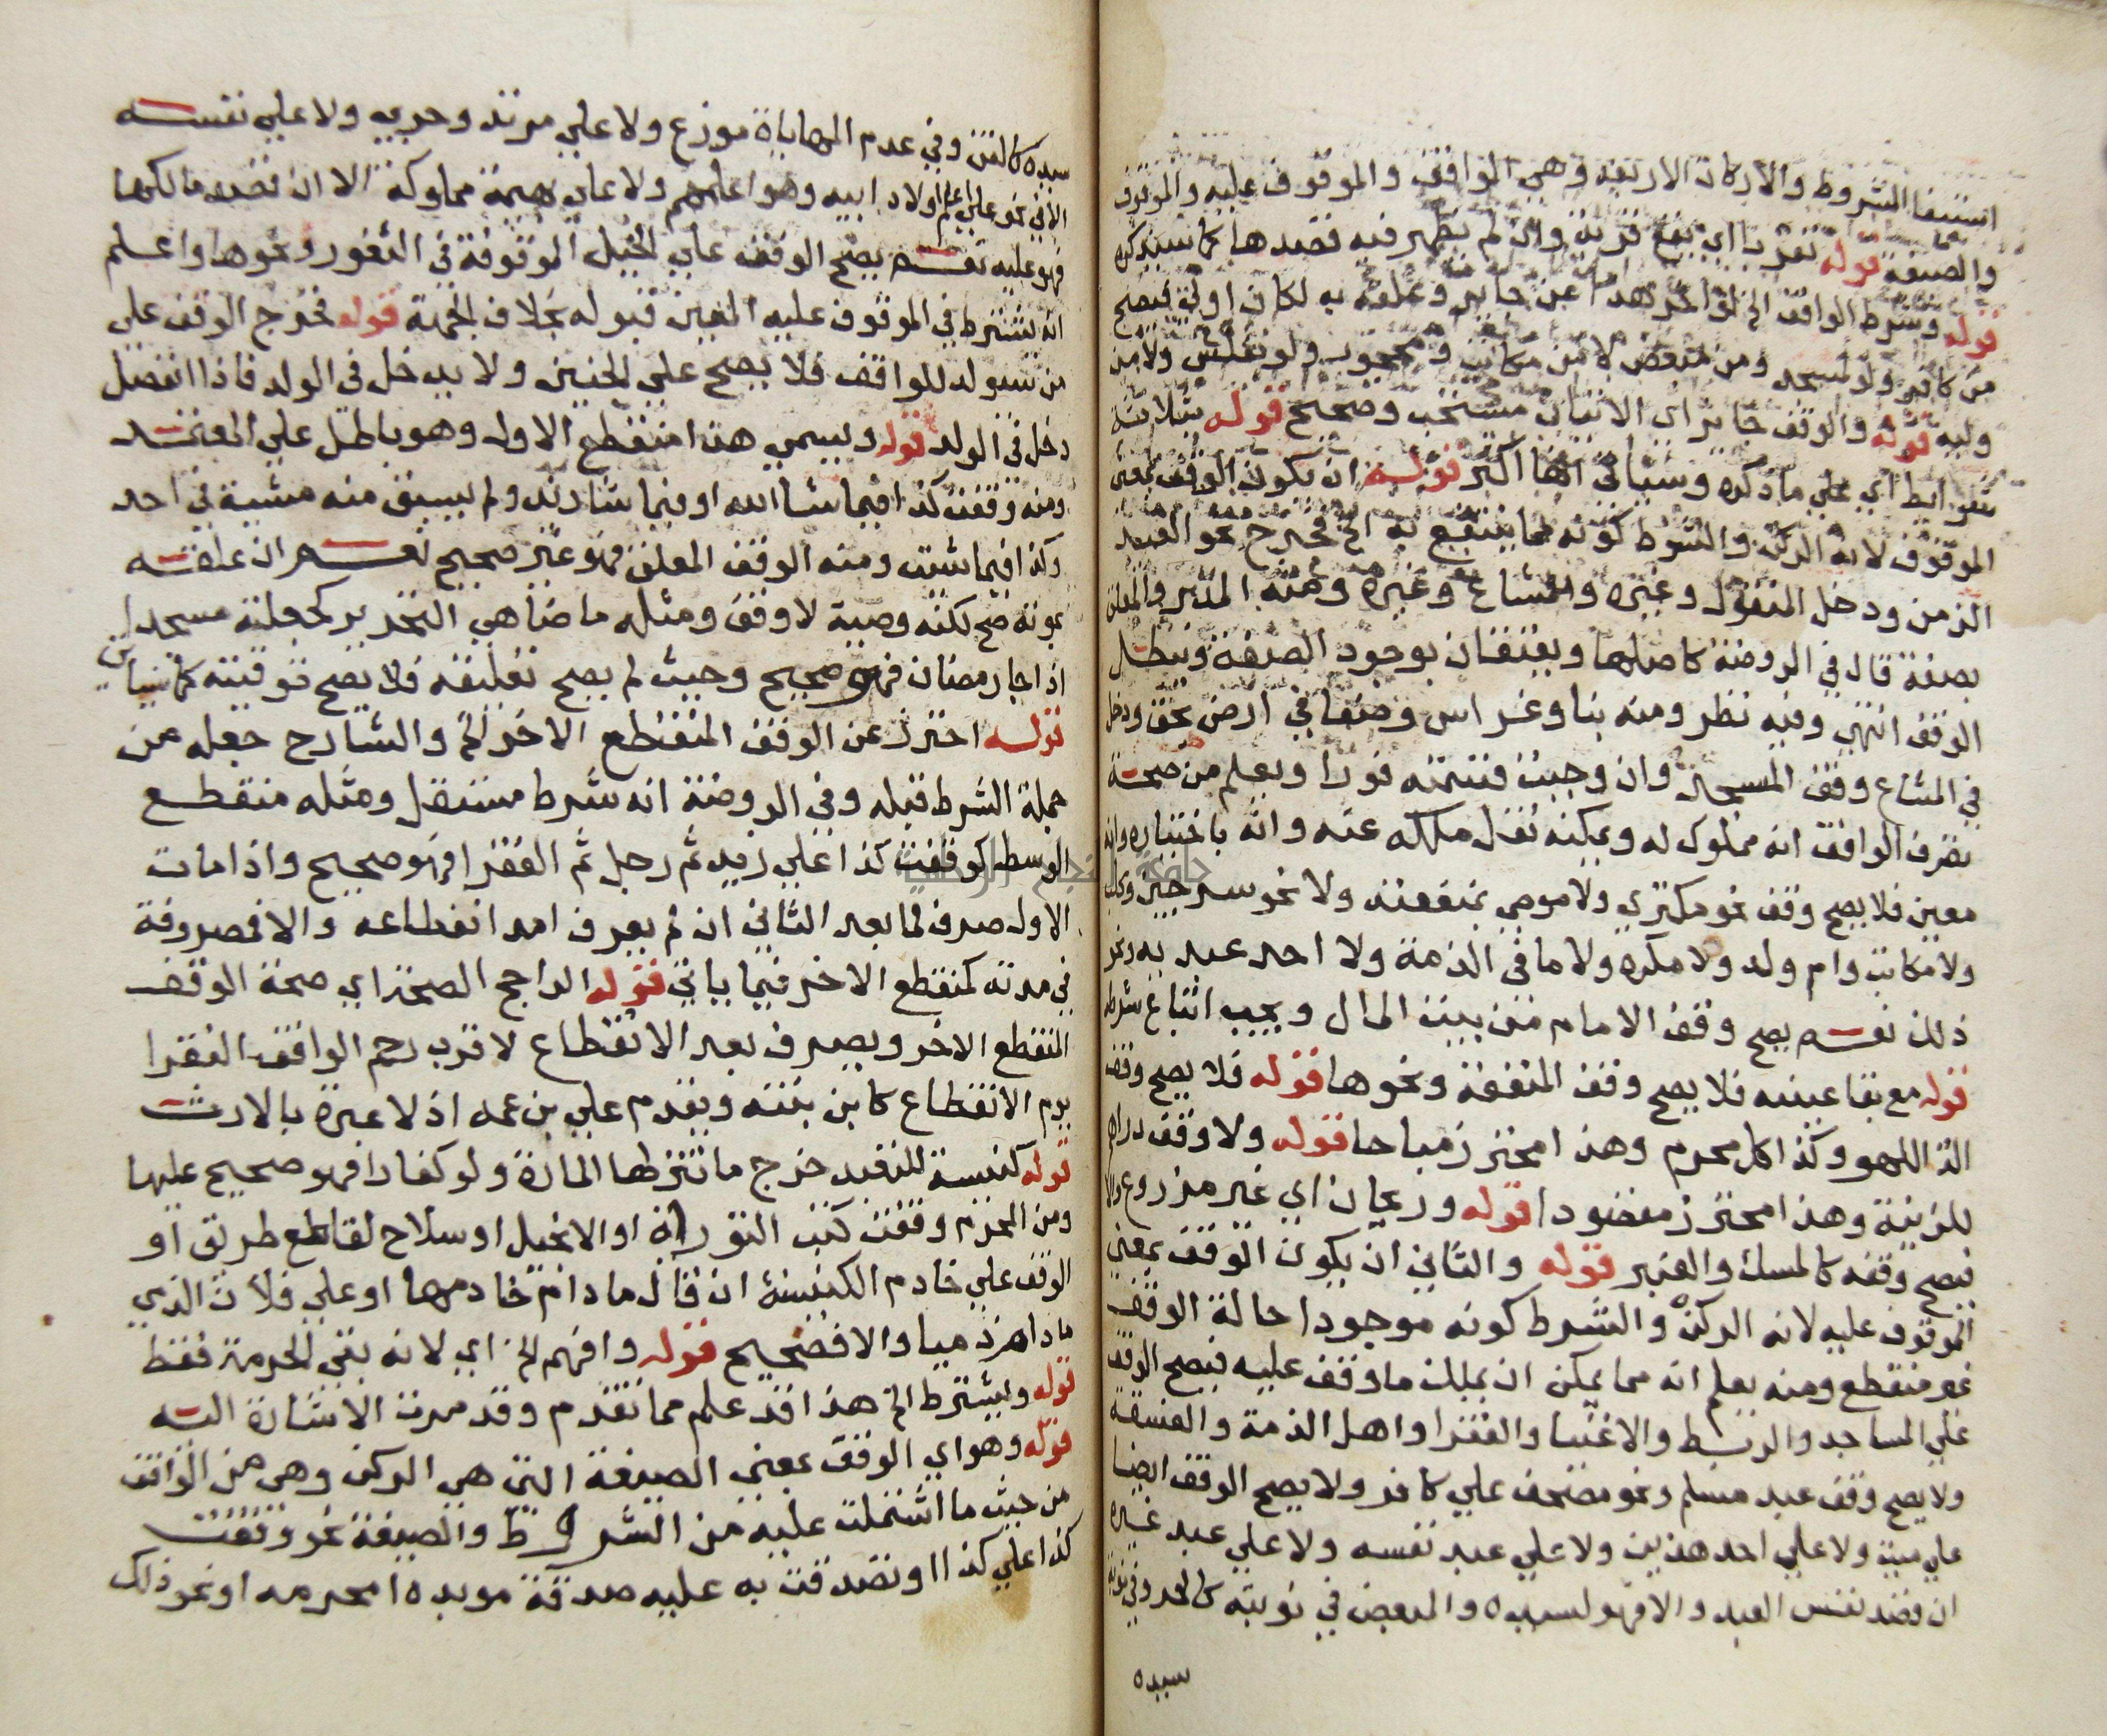 استيفا الشروط والاركان الاربعة وهي الواقف والموقوف عليه والموقوف
والصيغة قوله تقربا اي يقع قربة وان لم يظهر فيه قصدها كما سيذكره
قوله وشرط الواقف الخ
من كافر ولو لمسجد ومن مبعض لا من مكاتب ومحجور ولو بفلس ولا من
وليه قوله والوقف جايز اي الاتيان مستحب وصحيح قوله بثلاثة
شرايط اي على ما ذكره وسياتي انها اكثر قوله ان يكون الوقف بمعنى
الموقوف لانه الركن والشرط كونه مما ينتفع به الخ فخرج نحو العبد
الزمن ودخل المنقول وغيره والمشاع وغيره ومنه المدبر والمعلق
بصفة قال في الروضة كاصلها ويعتقان بوجود الصفة ويبطل
الوقف انتهى وفيه نظر ومنه بنا وغراس وضعا في ارض بحق ودخل
في المشاع وقف المسجد وان وجبت قسمته فورا ويعلم من صحة
تصرف الواقف انه مملوك له ويمكنه نقل ملكه عنه وانه باختياره وانه
معين فلا يصح وقف نحو مكتري ولا موصي بمنفعته ولا نحو سرجين وكلب
ولا مكاتب وام ولد ولا مكره ولا ما في الذمة ولا احد عبديه ونحو
ذلك نعم يصح وقف الامام من بيت المال ويجب اتباع شرطه
قوله مع بقا عينه فلا يصح وقف المنفعة ونحوها قوله فلا يصح وقف
الة اللهو وكذا كل محرم وهذا محترز مباحا قوله ولا وقف دراهم
للزينة وهذا محترز مقصودا قوله وريحان اي غير مزروع والا
فيصح وقفه كالمسك والعنبر قوله والثاني ان يكون الوقف بمعنى
الموقوف عليه لانه الركن والشرط كونه موجودا حالة الوقف
غير منقطع ومنه يعلم انه مما يمكن ان يملك ما وقف عليه فيصح الوقف
على المساجد والربط والاغنيا والفقرا واهل الذمة والفسقة
ولا يصح وقف عبد مسلم ونحو مصحف علي كافر ولا يصح الوقف ايضا
علي ميت ولا علي احد هذين ولا علي عبد نفسه ولا علي عبد غيره
ان قصد نفس العبد والا فهو لسيده والمبعض في نوبته كالحر وفي نوبة
سيده
سيده كالقن وفي عدم المهاياة موزع ولا علي مرتد وحربي ولا علي نفسه
الا في نحو علي اعلم اولاد ابيه وهو اعلمهم ولا علي بهيمة مملوكة الا ان قصد مالكها
فهو عليه نعم يصح الوقف علي الخيل الموقوفة في الثغور ونحوها واعلم
انه يشترط في الموقوف عليه المعين قبوله بخلاف الجهة قوله فخرج الوقف علي
من سيولد للواقف فلا يصح علي الجنين ولا يدخل في الولد فاذا انفصل
دخل في الولد قوله ويسمي هذا منقطع الاول وهو باطل علي المعتمد
ومنه وقفت كذا فيما شا الله او فيما شا زيد ولم يسبق منه مشية في احد
وكذا فيما شيت ومنه الوقف المعلق فهو غير صحيح نعم ان علقه
بموته صح لكنه وصية لا وقف ومثله ما ضاهي التحرير كجعلته مسجدا
اذا جا رمضان فهو صحيح وحيث لم يصح تعليقه فلا يصح توقيته كما سياتي
قوله احترز عن الوقف المنقطع الاخر الخ والشارح جعله من
جملة الشرط قبله وفي الروضة انه شرط مستقل ومثله منقطع
الوسط كوقفت كذا علي زيد ثم رجل ثم الفقرا فهو صحيح واذا مات
الاول صرف لما بعد الثاني ان لم يعرف امد انقطاعه والا فمصروفة
في مدته كمنقطع الاخر فيما ياتي قوله الراجح الصحة اي صحة الوقف
المنقطع الاخر ويصرف بعد الانقطاع لاقرب رحم الواقف الفقرا
يوم الانقطاع كابن بنته ويقدم علي بن عمه اذ لا عبرة بالارث
قوله كنيسة للتعبد خرج ما تنزلها المارة ولو كفارا فهو صحيح عليها
ومن المحرم وقفت كتب التوراة او الانجيل او سلاح لقاطع طريق او
الوقف علي خادم الكنيسة ان قال ما دام خادمها او علي فلان الذي
ما دام ذميا والا فصحيح قوله وافهم الخ اي لانه نفي الحرمة فقط
قوله ويشترط الخ هذا قد علم مما تقدم وقد مرت الاشارة اليه
قوله وهو اي الوقف بمعني الصيغة التي هي الركن وهي من الواقف
من حيث ما اشتملت عليه من الشروط والصيغة نحو وقفت
كذا علي كذا او تصدقت به عليه صدقة موبدة او محرمه او نحو ذلك